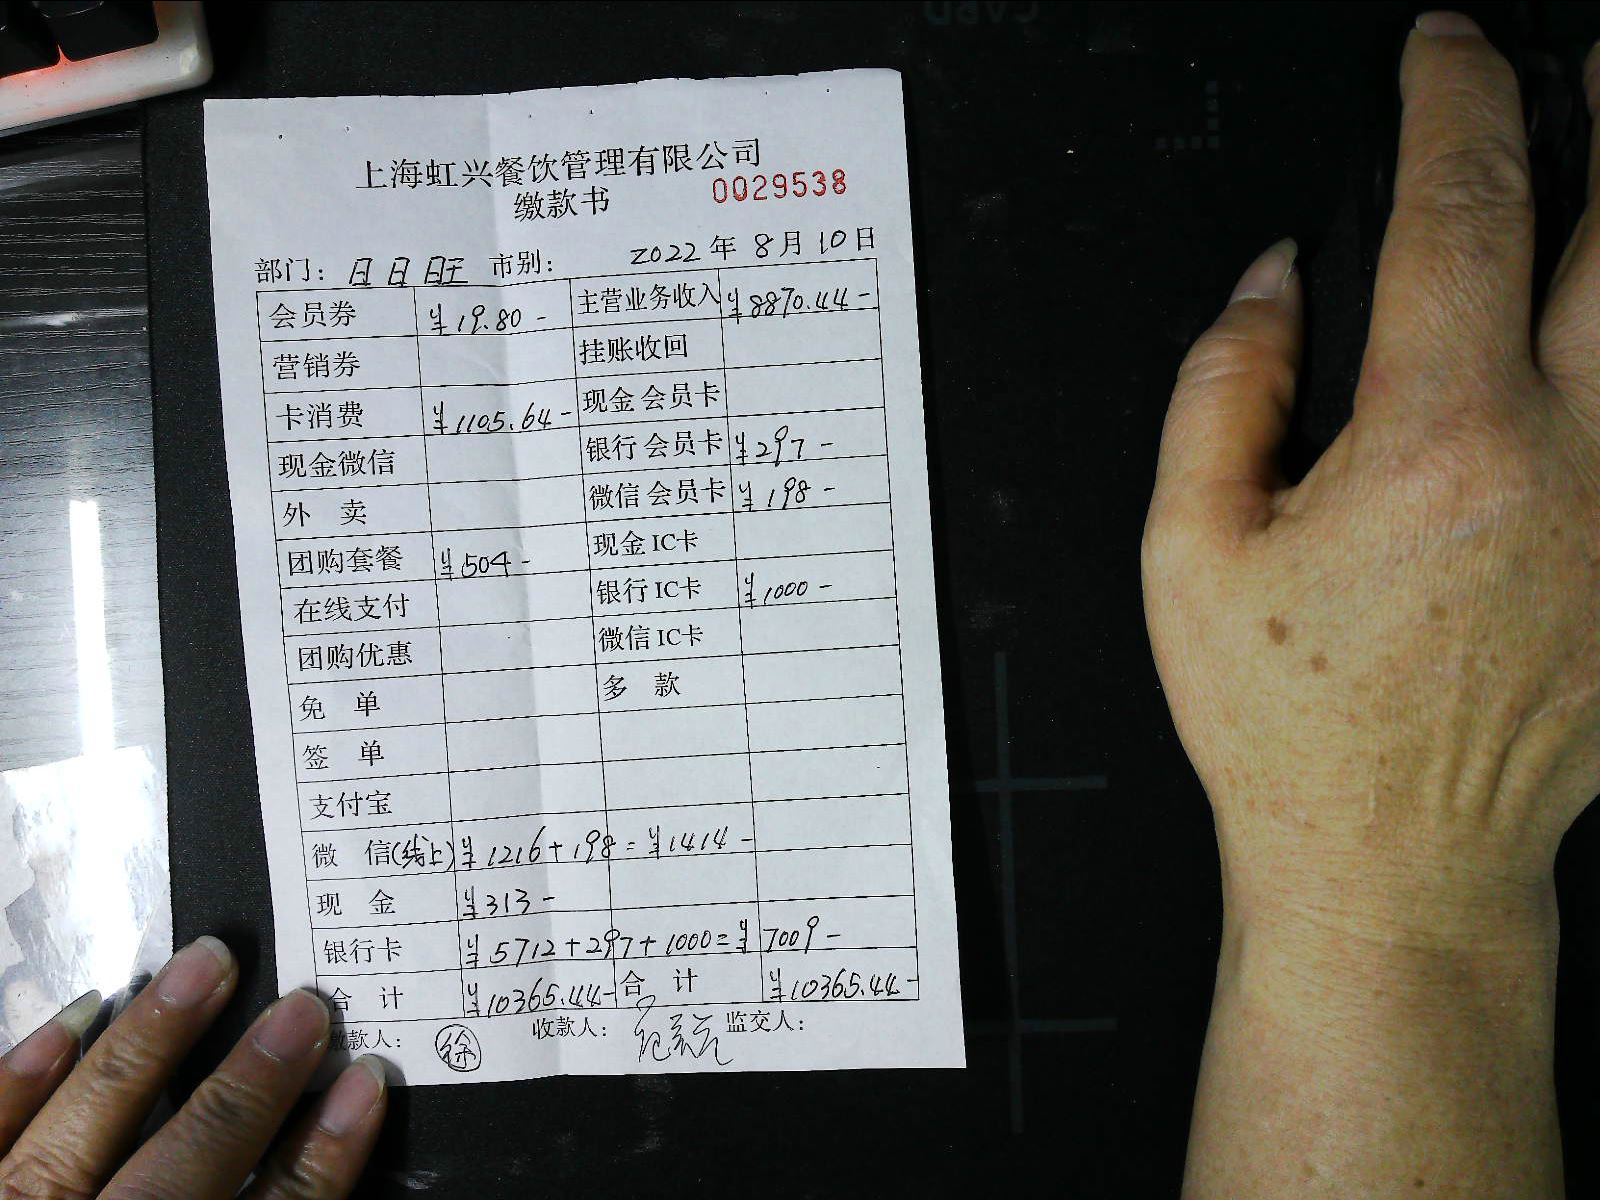 上海虹兴餐饮管理有限公司
缴款书 0029538
部门: 日日旺 市别: 2022年8月10日
会员券 ¥19.80- 主营业务收入 ¥8870.44-
营销券 挂账收回
卡消费 ¥1105.64- 现金会员卡
现金微信 银行会员卡 ¥297-
外卖 微信会员卡 ¥198-
团购套餐 ¥504- 现金IC卡
在线支付 银行IC卡 ¥1000-
团购优惠 微信IC卡
免单 多款
签单
支付宝
微信(线上) ¥1216+198=¥1414-
现金 ¥313-
银行卡 ¥5712+297+1000=¥7009-
合计 ¥10365.44- 合计 ¥10365.44-
缴款人: 徐 收款人: 监交人: